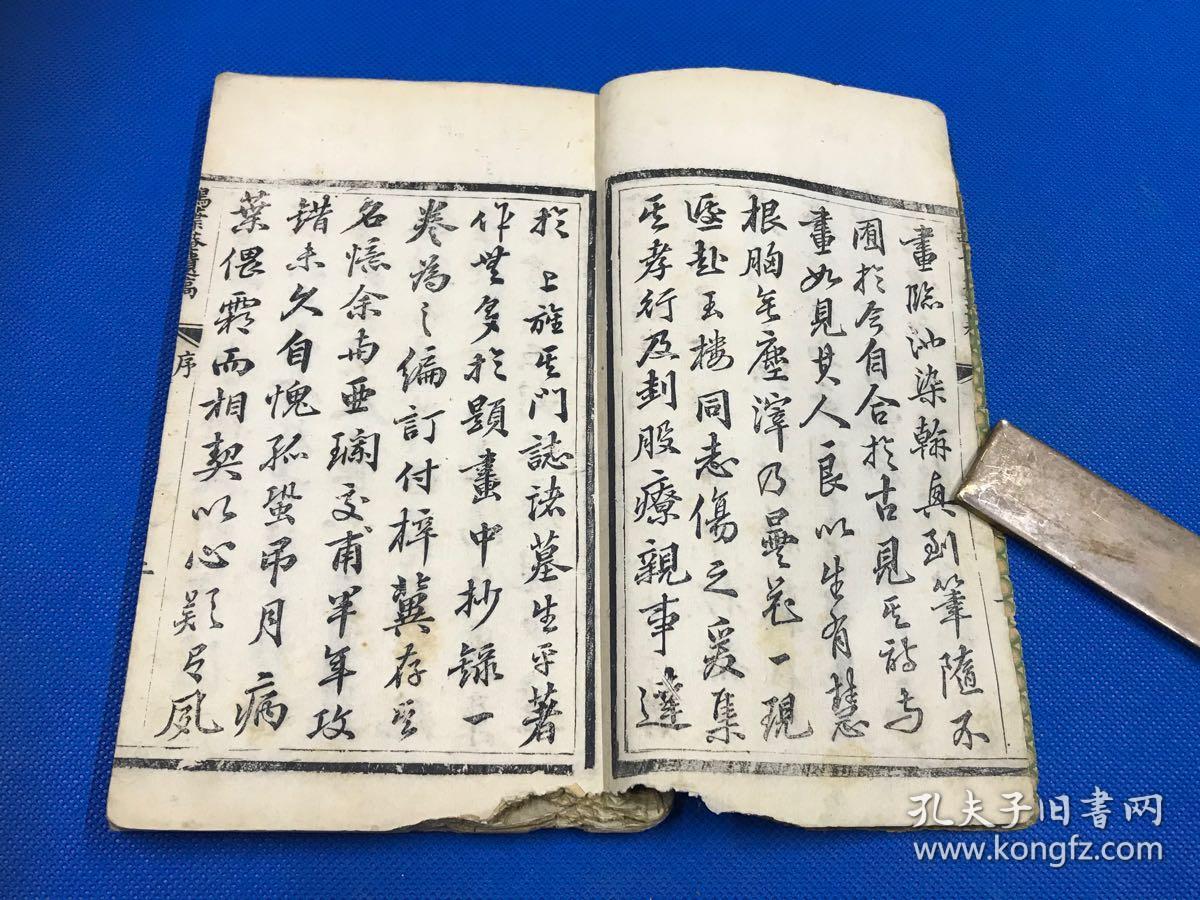 畫臨池染翰興到筆隨不
囿於今自合於古見其詩與
畫如見其人良以生有慧
根胸無塵滓乃曇花一現
遽赴玉樓同志傷之爰集
其孝行及刲股療親事達
於上旌其門誌諸墓生平著
作無多於題畫中抄錄一
卷為之編訂付梓冀存其
名憶余與亞瑚交甫半年攻
錯未久自愧孤蛩弔月病
葉偎霜而相契以心歎為風
葉菴遺稿
序
孔夫子旧书网
www.kongfz.com